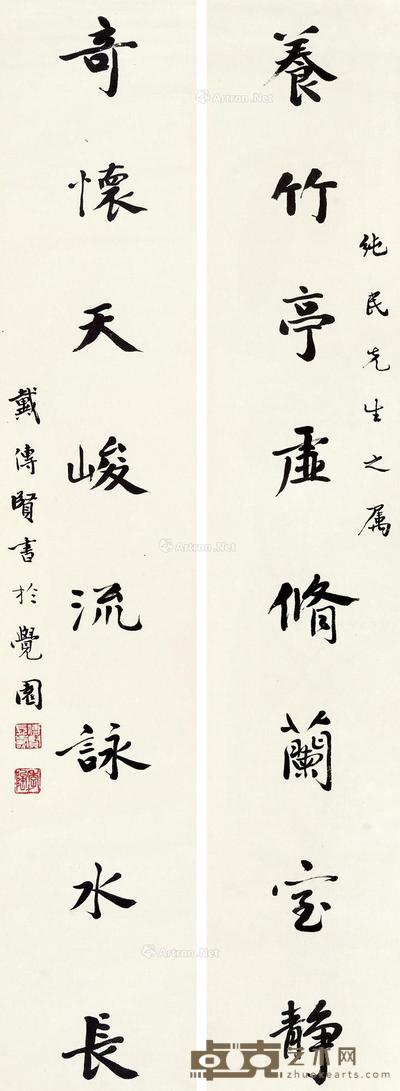 純民先生之属
養竹亭虛脩蘭室静
奇懷天峻流詠水長
戴傳賢書於覺園
Artron.Net
Artron.Net
Artron.Net
卓克艺术网
www.zhuokearts.com